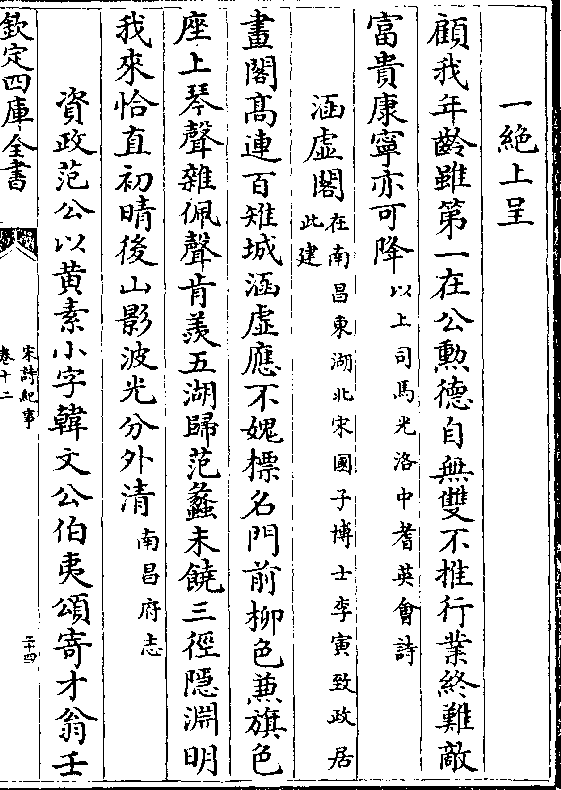 一絶上呈
顧我年齡雖第一在公勲德自無雙不推行業終難敵
富貴康寧亦可降以上司馬光洛中耆英會詩
涵虛閣在南昌東湖北宋國子博士李寅致政居此建
畫閣髙連百雉城涵虛應不媿標名門前柳色兼旗色
座上琴聲雜佩聲肯羨五湖歸范蠡未饒三徑隱淵明
我來恰直初晴後山影波光分外清南昌府志
資政范公以黄素小字韓文公伯夷頌寄才翁壬
欽定四庫全書
宋詩紀事
卷十二
二十四